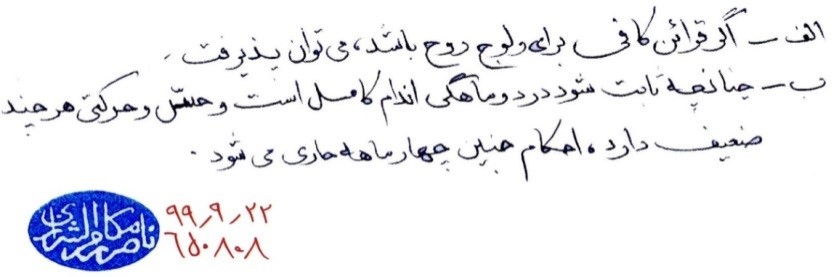 الف ـ اگر قرائن کافی برای ولوج روح باشد، می توان پذیرفت.
ب ـ چنانچه ثابت شود در دو ماهگی اندام کامل است و حس و حرکتی هر چند
ضعیف دارد، احکام جنین چهار ماهه جاری می شود.
ناصر مکارم الشیرازی
۹۹٫۹٫۲۲
۶۵۰۸۰۸